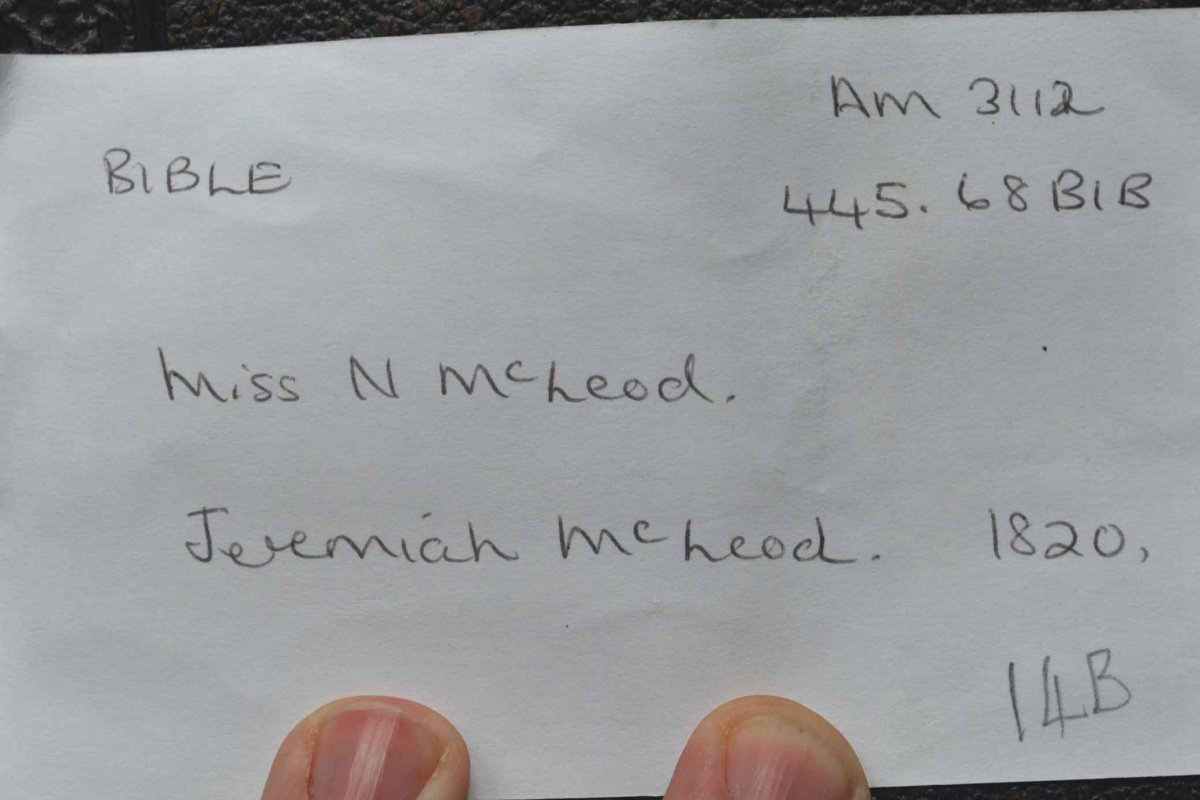 Am 3112
BIBLE
445.68 BIB
Miss N McLeod.
Jeremiah McLeod. 1820,
14B